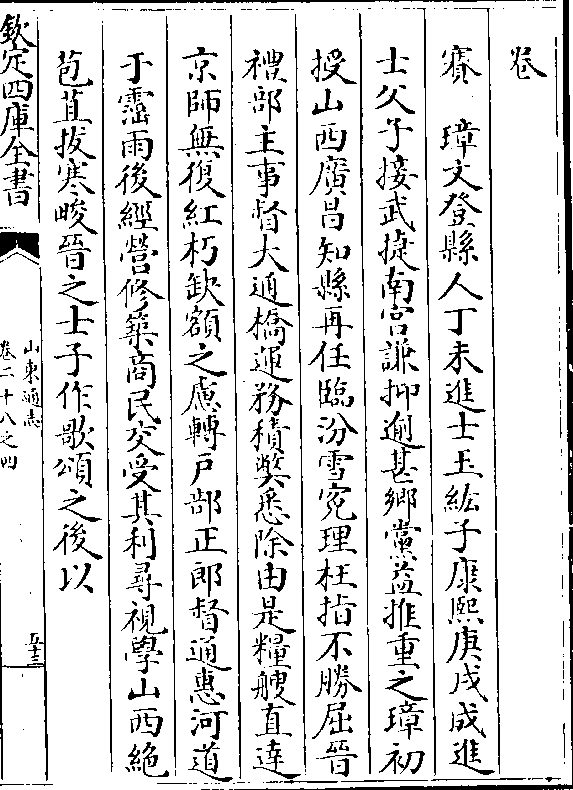 卷
賽　璋文登縣人丁未進士玉紘子康熙庚戌成進
士父子接武捷南宫謙抑逾甚鄉黨益推重之璋初
授山西廣昌知縣再任臨汾雪寃理枉指不勝屈晉
禮部主事督大通橋運務積獘悉除由是糧艘直達
京師無復紅朽缺額之慮轉户部正郎督通惠河道
于霪雨後經營修築商民交受其利尋視學山西絶
苞苴拔寒畯晉之士子作歌頌之後以
欽定四庫全書
山東通志
卷二十八之四
五十三